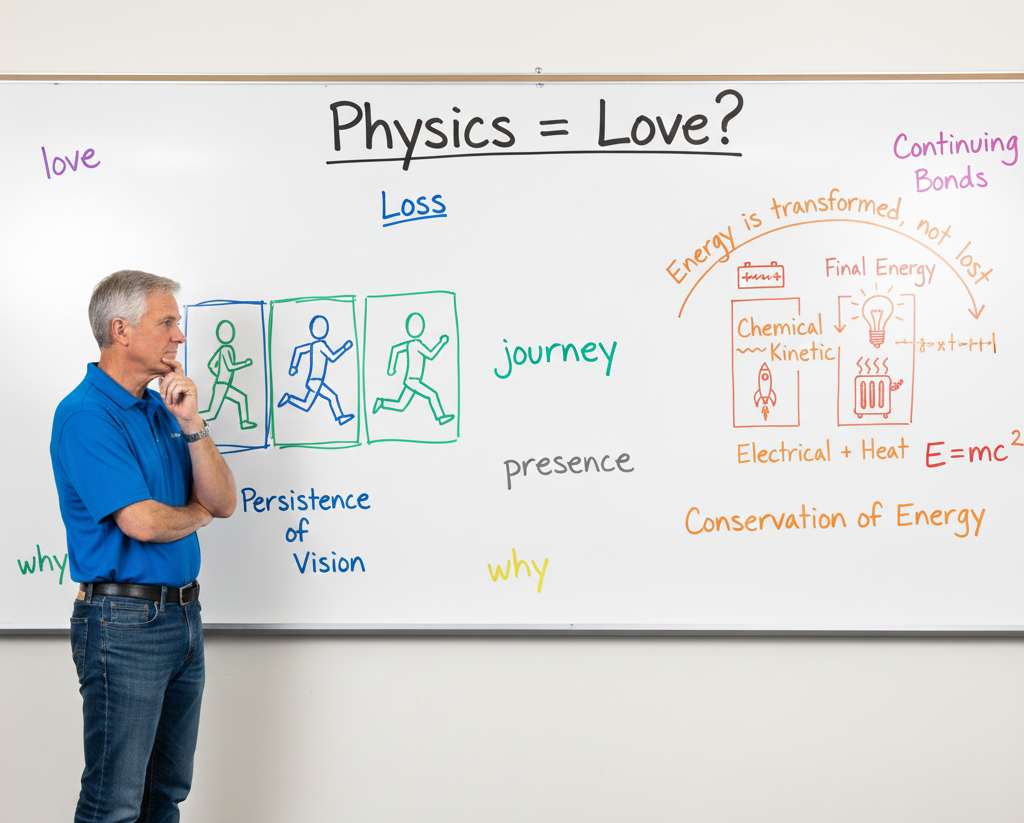 Physics = Love?
love
Continuing
Bonds
Loss
Energy is transformed, not lost
Final Energy
Chemical
Kinetic
journey
Electrical + Heat
E=mc²
presence
Persistence
of
Vision
Conservation of Energy
why
why